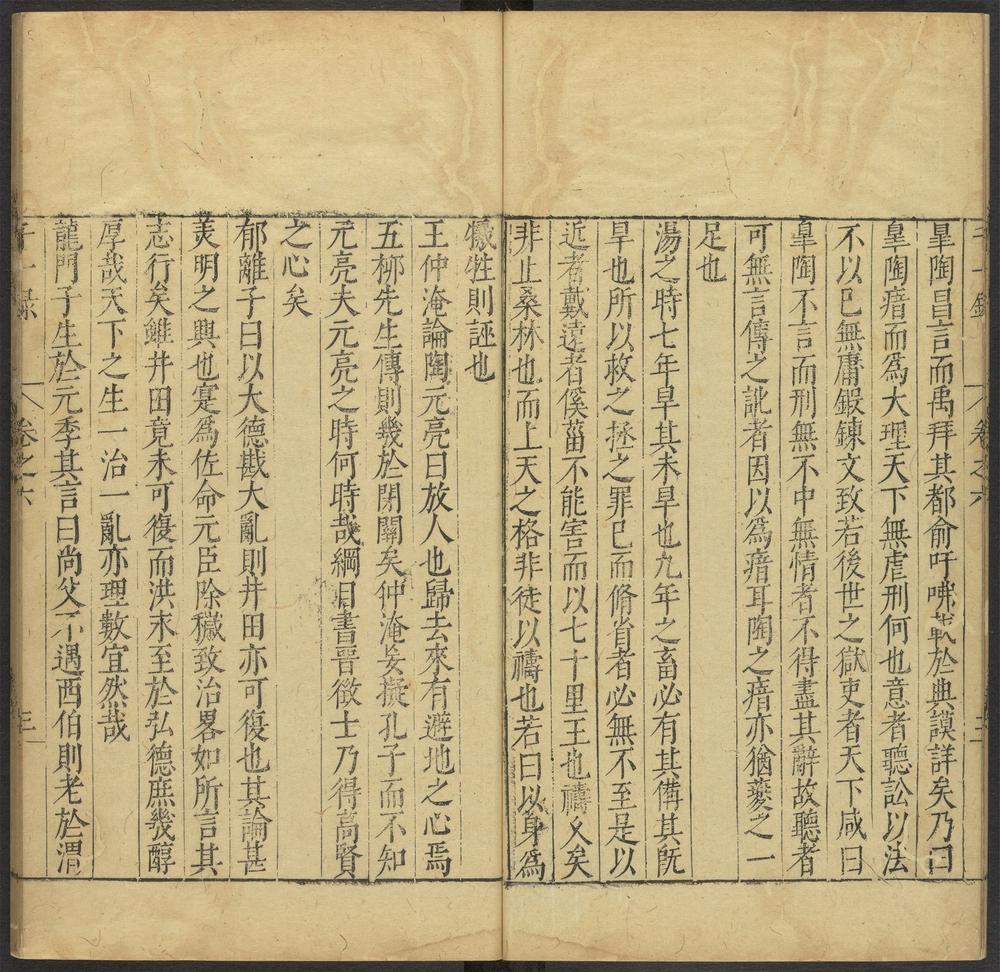 皐陶昌言而禹拜其都俞吁咈載於典謨詳矣乃曰
皐陶瘖而爲大理天下無虐刑何也意者聽訟以法
不以已無庸鍜鍊文致若後世之獄吏者天下咸曰
皐陶不言而刑無不中無情者不得盡其辭故聽者
可無言傳之訛者因以爲瘖耳陶之瘖亦猶夔之一
足也
湯之時七年旱其未旱也九年之畜必有其備其旣
旱也所以救之拯之罪已而脩省者必無不至是以
近者戴遠者徯菑不能害而以七十里王也禱乂矣
非止桑林也而上天之格非徒以禱也若曰以身爲
犧牲則誣也
王仲淹論陶元亮曰放人也歸去來有避地之心焉
五栁先生傳則幾於閉關矣仲淹妄擬孔子而不知
元亮夫元亮之時何時哉綱目書晉徵士乃得高賢
之心矣
郁離子曰以大德戡大亂則井田亦可復也其論甚
羙明之興也寔爲佐命元臣除穢致治畧如所言其
志行矣雖井田竟未可復而洪永至於弘德庶幾醇
厚哉天下之生一治一亂亦理數宜然哉
龍門子生於元季其言曰尚父不遇西伯則老於渭
卷之六
三